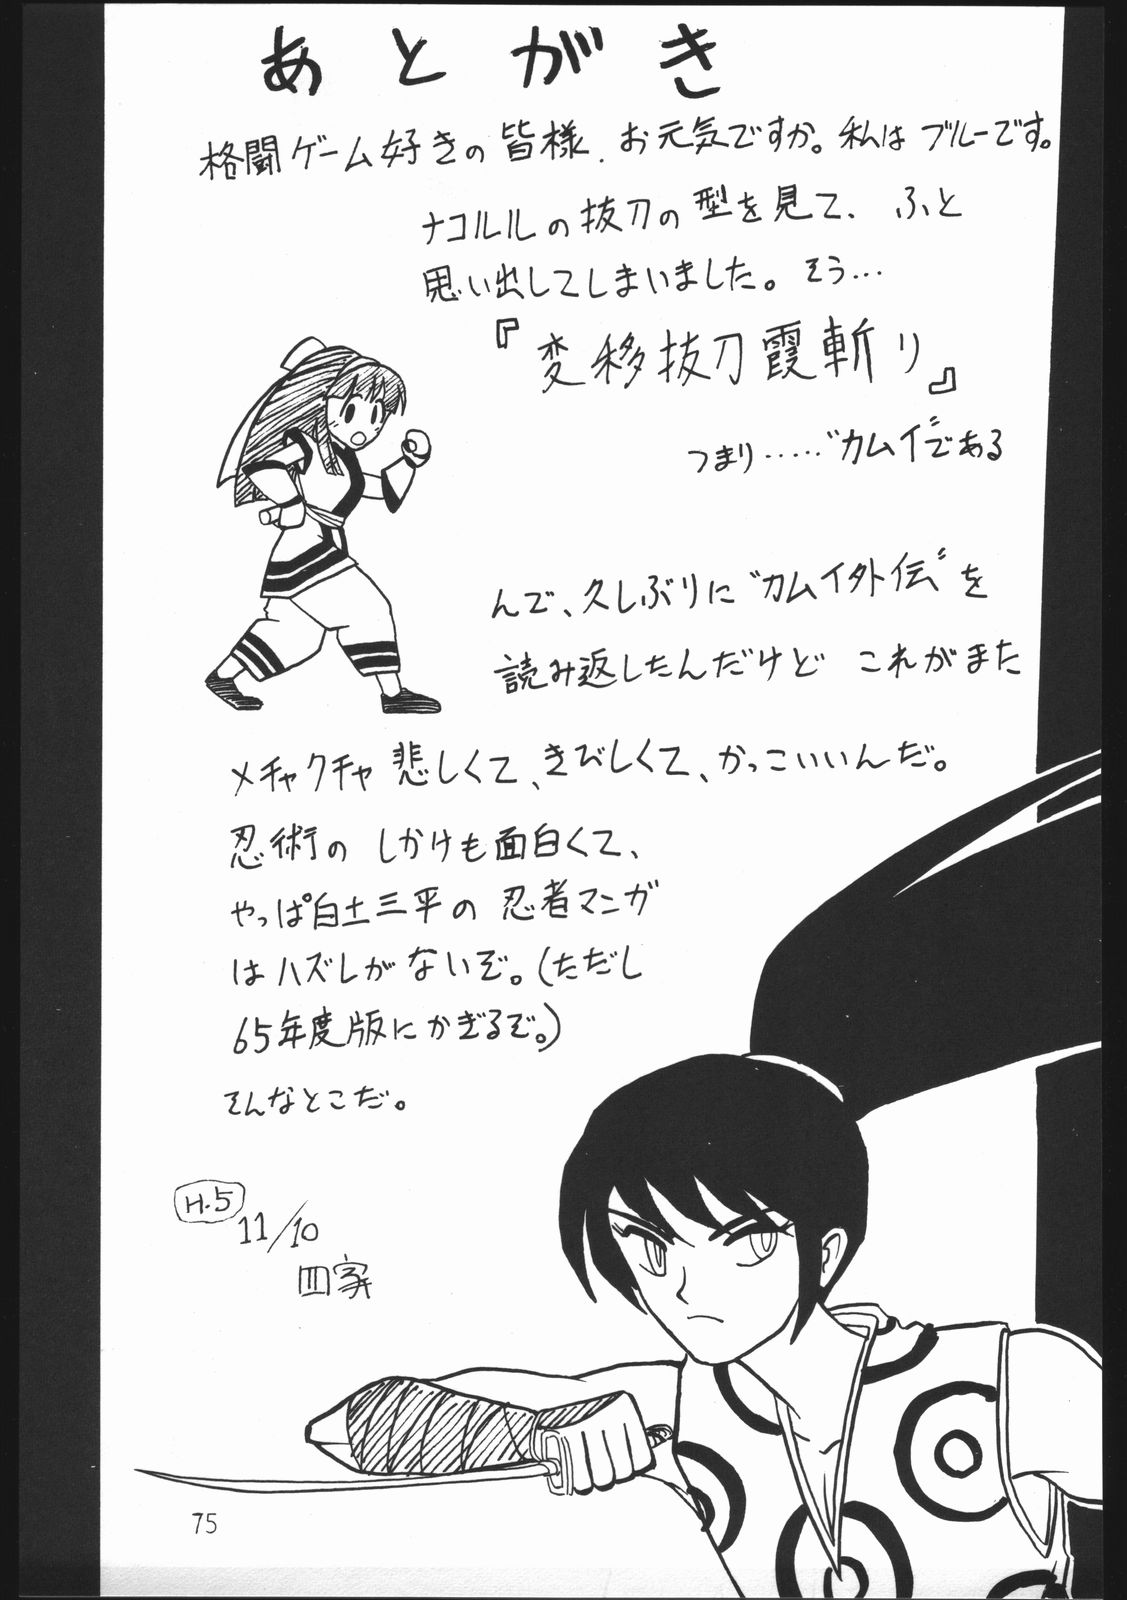 あとがき
格闘ゲーム好きの皆様、お元気ですか。私はブルーです。
ナコルルの抜刀の型を見て、ふと
思い出してしまいました。そう…
『変移抜刀霞斬り』
つまり……〝カムイ〟である
んで、久しぶりに〝カムイ外伝〟を
読み返したんだけど これがまた
メチャクチャ悲しくて、きびしくて、かっこいいんだ。
忍術の しかけも面白くて、
やっぱ白土三平の 忍者マンガ
はハズレがないぞ。(ただし
65年度版にかぎるぞ。)
そんなとこだ。
H.5
11/10
四家
75